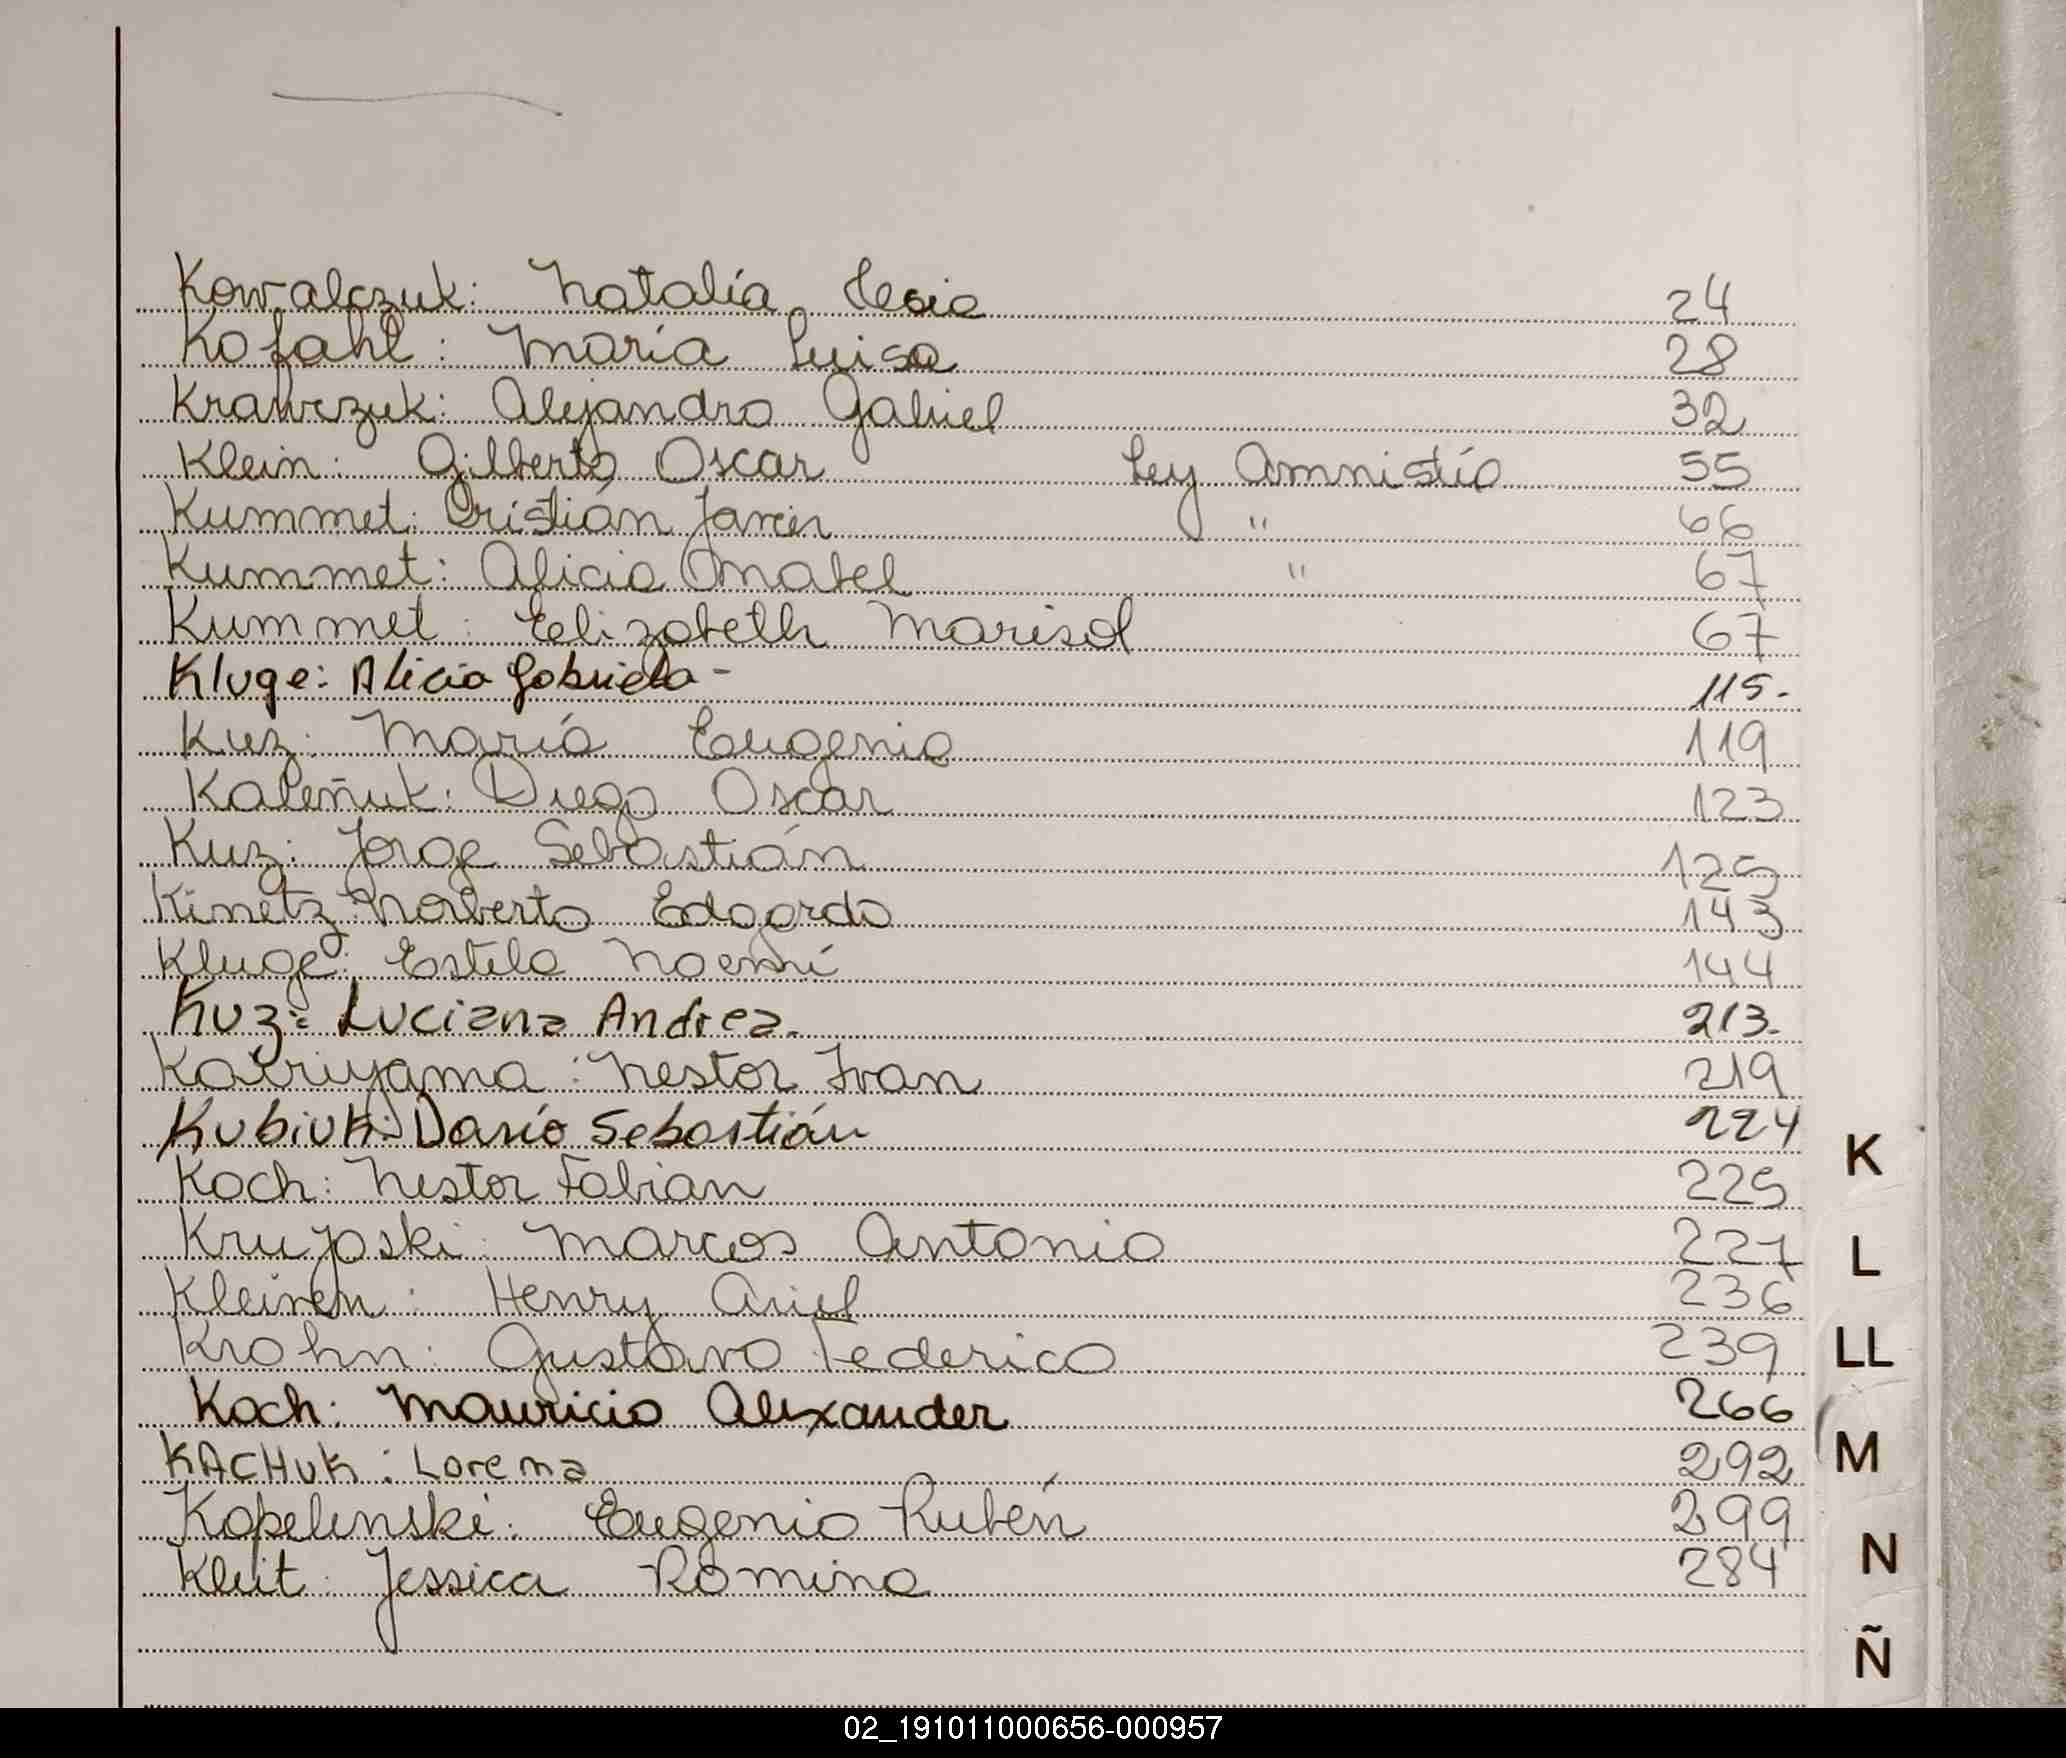 Kowalczuk: Natalia 24
Kofahl: María Luisa 28
Krawczuk: Alejandro Gabriel 32
Klein: Gilberto Oscar Ley Amnistía 55
Kummet: Cristián Javier " 66
Kummet: Alicia Mabel " 67
Kummet: Elizabeth Marisol 67
Kluge: Alicia Gabriela - 115.
Kuz: María Eugenia 119
Kaleñuk: Diego Oscar 123
Kuz: Jorge Sebastián 125
Kimetz: Norberto Edgardo 143
Kluge: Estela Noemí 144
Kuz: Luciana Andrea. 213.
Katriyama: Nestor Ivan 219
Kubiuk: Darío Sebastián 224
Koch: Nestor Fabian 225
Krujoski: Marcos Antonio 227
Kleiven: Henry Ariel 236
Krohn: Gustavo Federico 239
Koch: Mauricio Alexander 266
KACHUK: Lorena 292
Kopelenski: Eugenio Rubén 299
Kleit: Jessica Romina 284
K
L
LL
M
N
Ñ
02_191011000656-000957